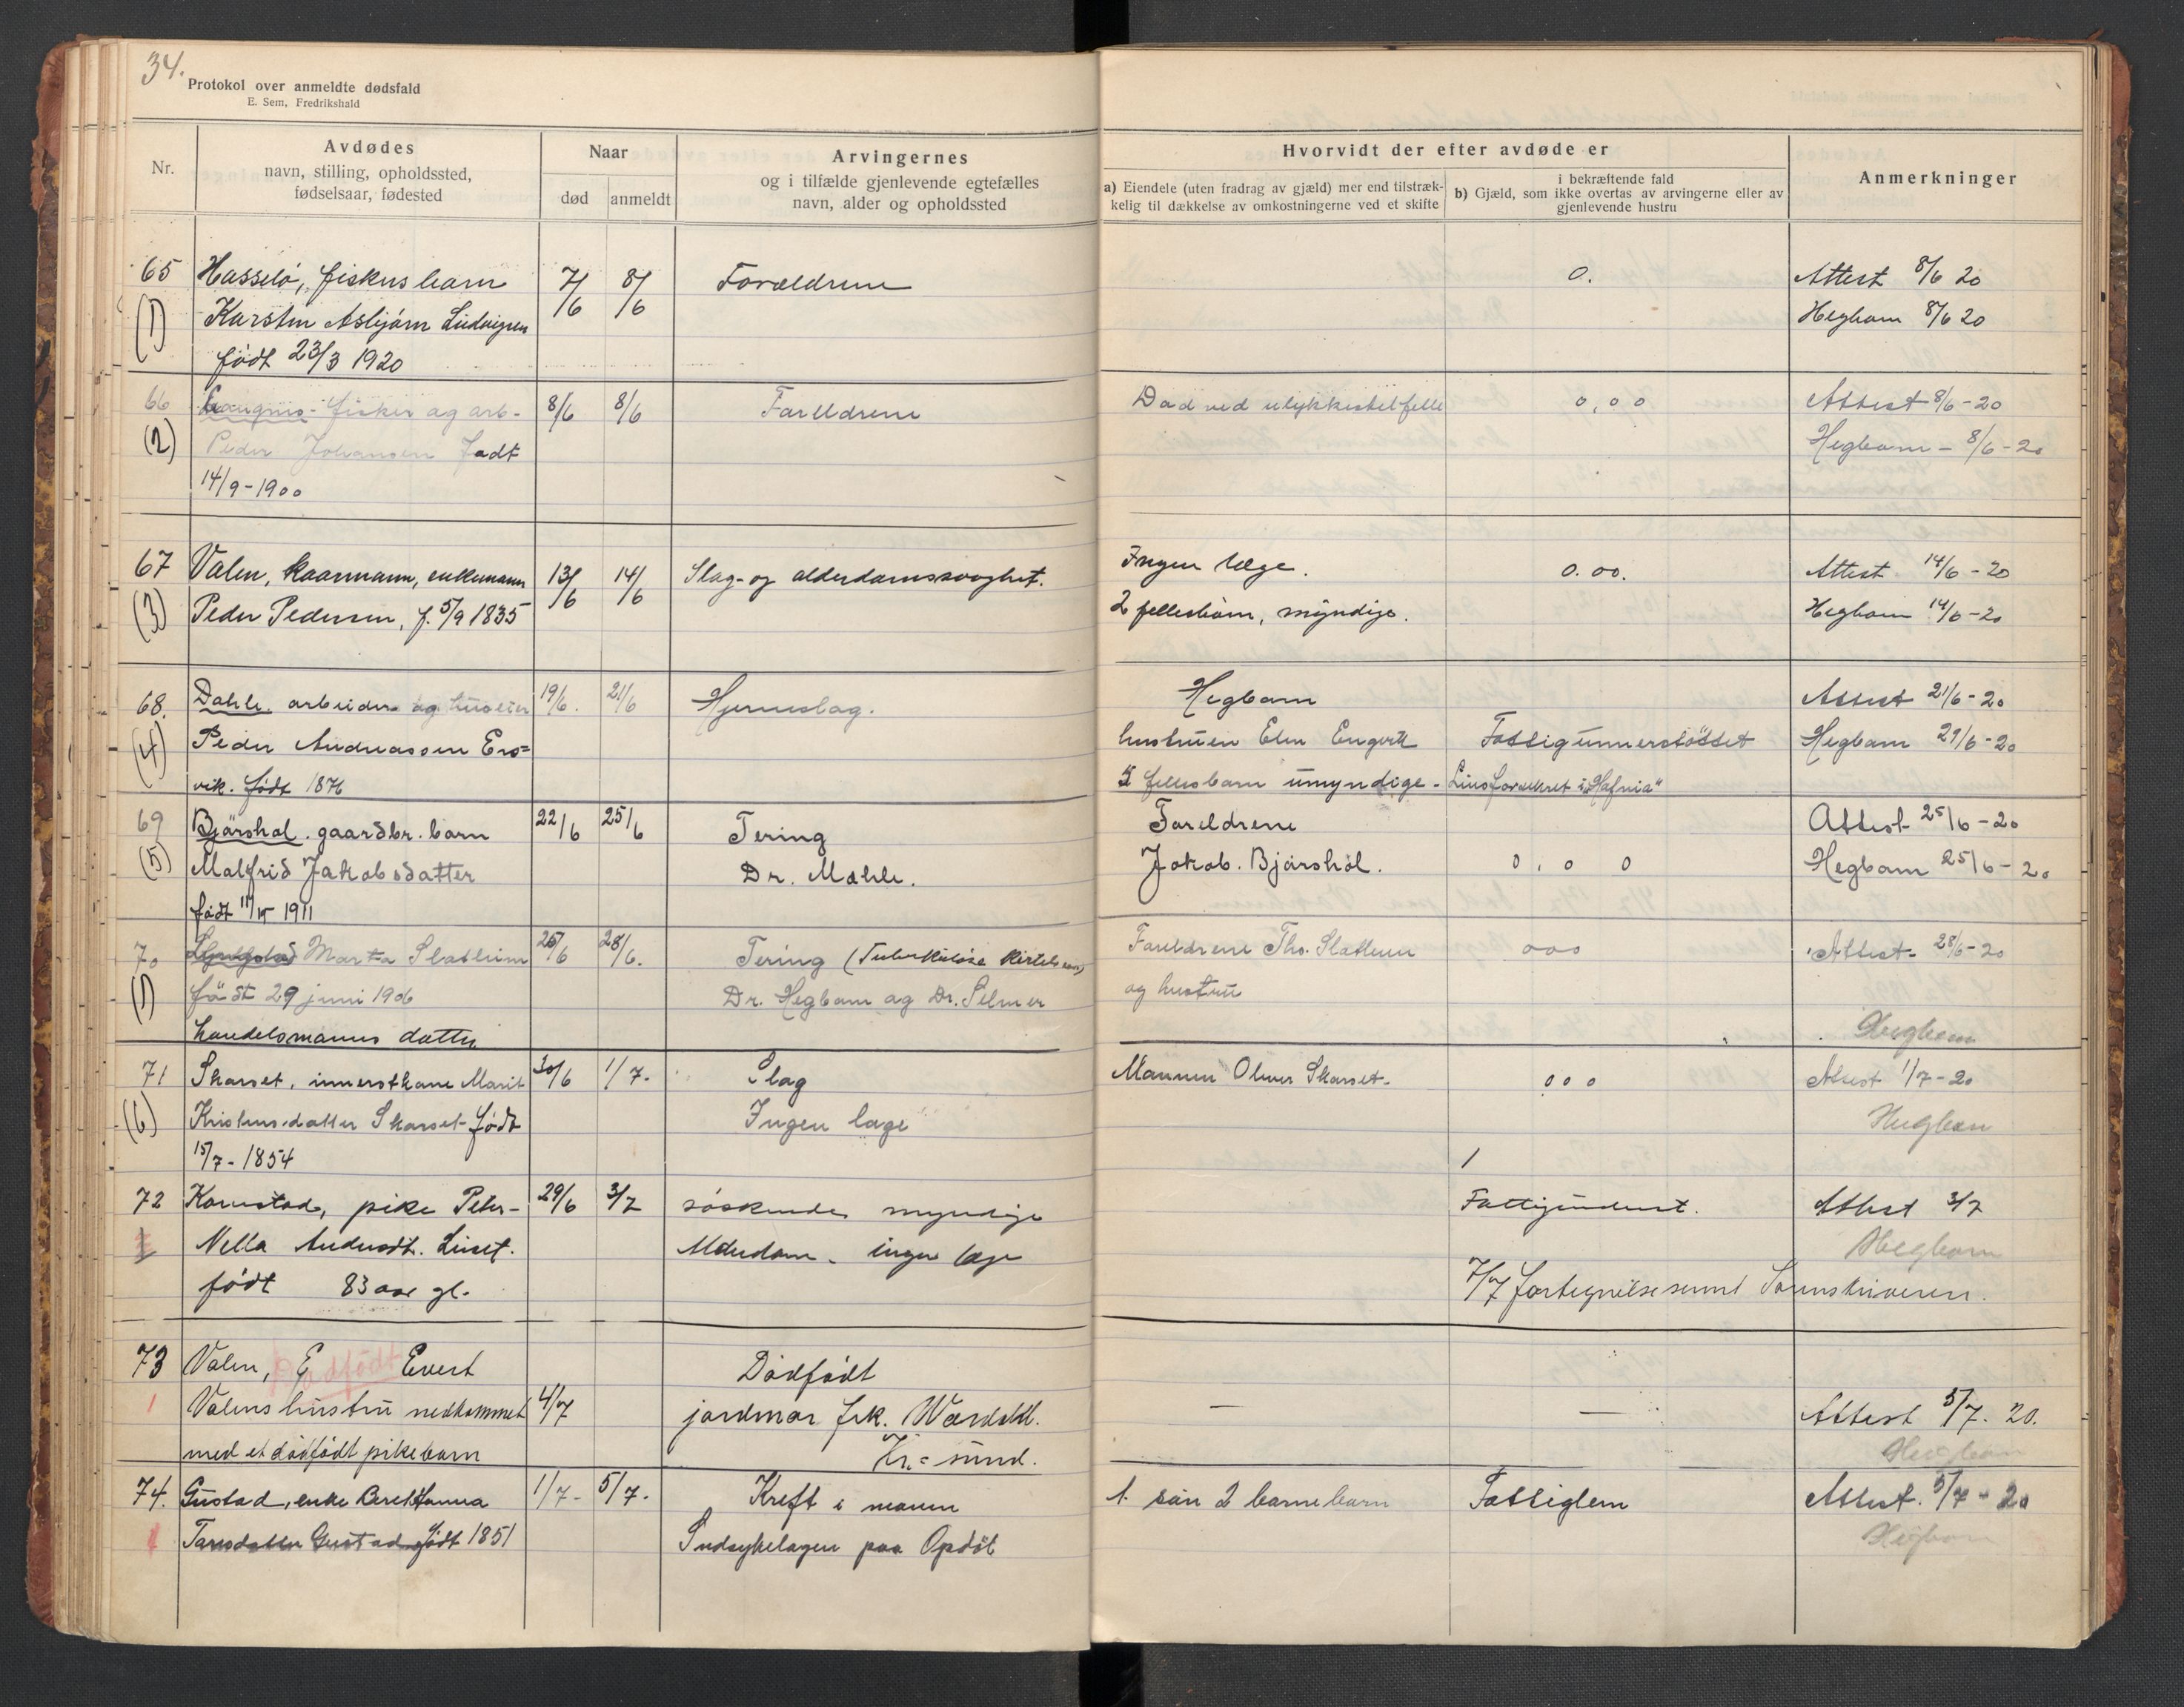 34.
Protokol over anmeldte dødsfald
E. Sem, Fredrikshald
Nr.
Avdødes
navn, stilling, opholdssted,
fødselsaar, fødested
Naar
død
anmeldt
Arvingernes
og i tilfælde gjenlevende egtefælles
navn, alder og opholdssted
Hvorvidt der efter avdøde er
a) Eiendele (uten fradrag av gjæld) mer end tilstræk-
kelig til dækkelse av omkostningerne ved et skifte
i bekræftende fald
b) Gjæld, som ikke overtas av arvingerne eller av
gjenlevende hustru
Anmerkninger
65 Hasselö, fiskers barn 7/6 8/6 Forældrene 0. Attest 8/6 20
(1) Karsten Asbjörn Ludvigsen Hegbom 8/6 20
født 23/3 1920
66 fisker og arb- 8/6 8/6 Foreldrene Död ved ulykkestilfelle 0,00 Attest 8/6-20
(2) Peder Johansen födt Hegbom - 8/6-20
14/9-1900
67 Valen, kaarmann, enkemann 13/6 14/6 Slag- og alderdomssvaghet. Ingen læge. 0.00. Attest 14/6-20
(3) Peder Pedersen, f. 5/9 1835 2 fellesbörn, myndige. Hegbom 14/6-20
68. Dahle. arbeider og huseier 19/6. 21/6 Hjerneslag. Hegbom Attest 21/6-20
(4) Peder Andreassen Ers= hustruen Elen Fattigunnerstöttet Hegbom 21/6-20
vik. födt 1876 5 fellesbarn umyndige - Livsforsikret i "Hafnia"
69 Björshol. gaardbr. barn 22/6 25/6 Tering Foreldrene Attest 25/6-20
(5) Malfrid Jakobsdatter Dr. Mæhle. Jakob. Bjørshol. 0,00 Hegbom 25/6-20
födt 11/ 1911
70 Lyngstad Marta Slatlem 25/6 28/6. Tering (Tuberkuløse Foreldrene Tho. Slatlem 000 Attest- 28/6-20
(1) födt 29 juni 1906 Dr. Hegbom og Dr. Selmer og hustru
handelsmanns datter Hegbom
71 Skarset, innerstkone Marit 30/6 1/7- Slag Mannen Oliver Skarset. 000 Attest 1/7-20
(6) Kristensdatter Skarset födt Ingen læge Hegbom
15/7-1854 1
72 Kornstad, pike Peter- 29/6 3/7 söskende myndige Fattigunderst. Attest 3/7
Nella Andersdt. Liset. Alderdom. ingen læge Hegbom
född 83 aar gl. 7/7 fortegnelse sennt Sorenskriveren.
73 Valen, E Evert Dödfödt
Dødfødt
1 Valens hustru nedkommet 4/7 jordmor frk. — — Attest 5/7. 20.
med et dödfödt pikebarn Kr.-sund. Hegbom
74. Gustad, enke Beret Hanna 1/7- 5/7. Kreft i maven 1 sön 2 barnebarn Fattiglem Attest. 5/7-20
1 Gustad födt 1851 Sindsykelagen paa Opdöl Hegbom